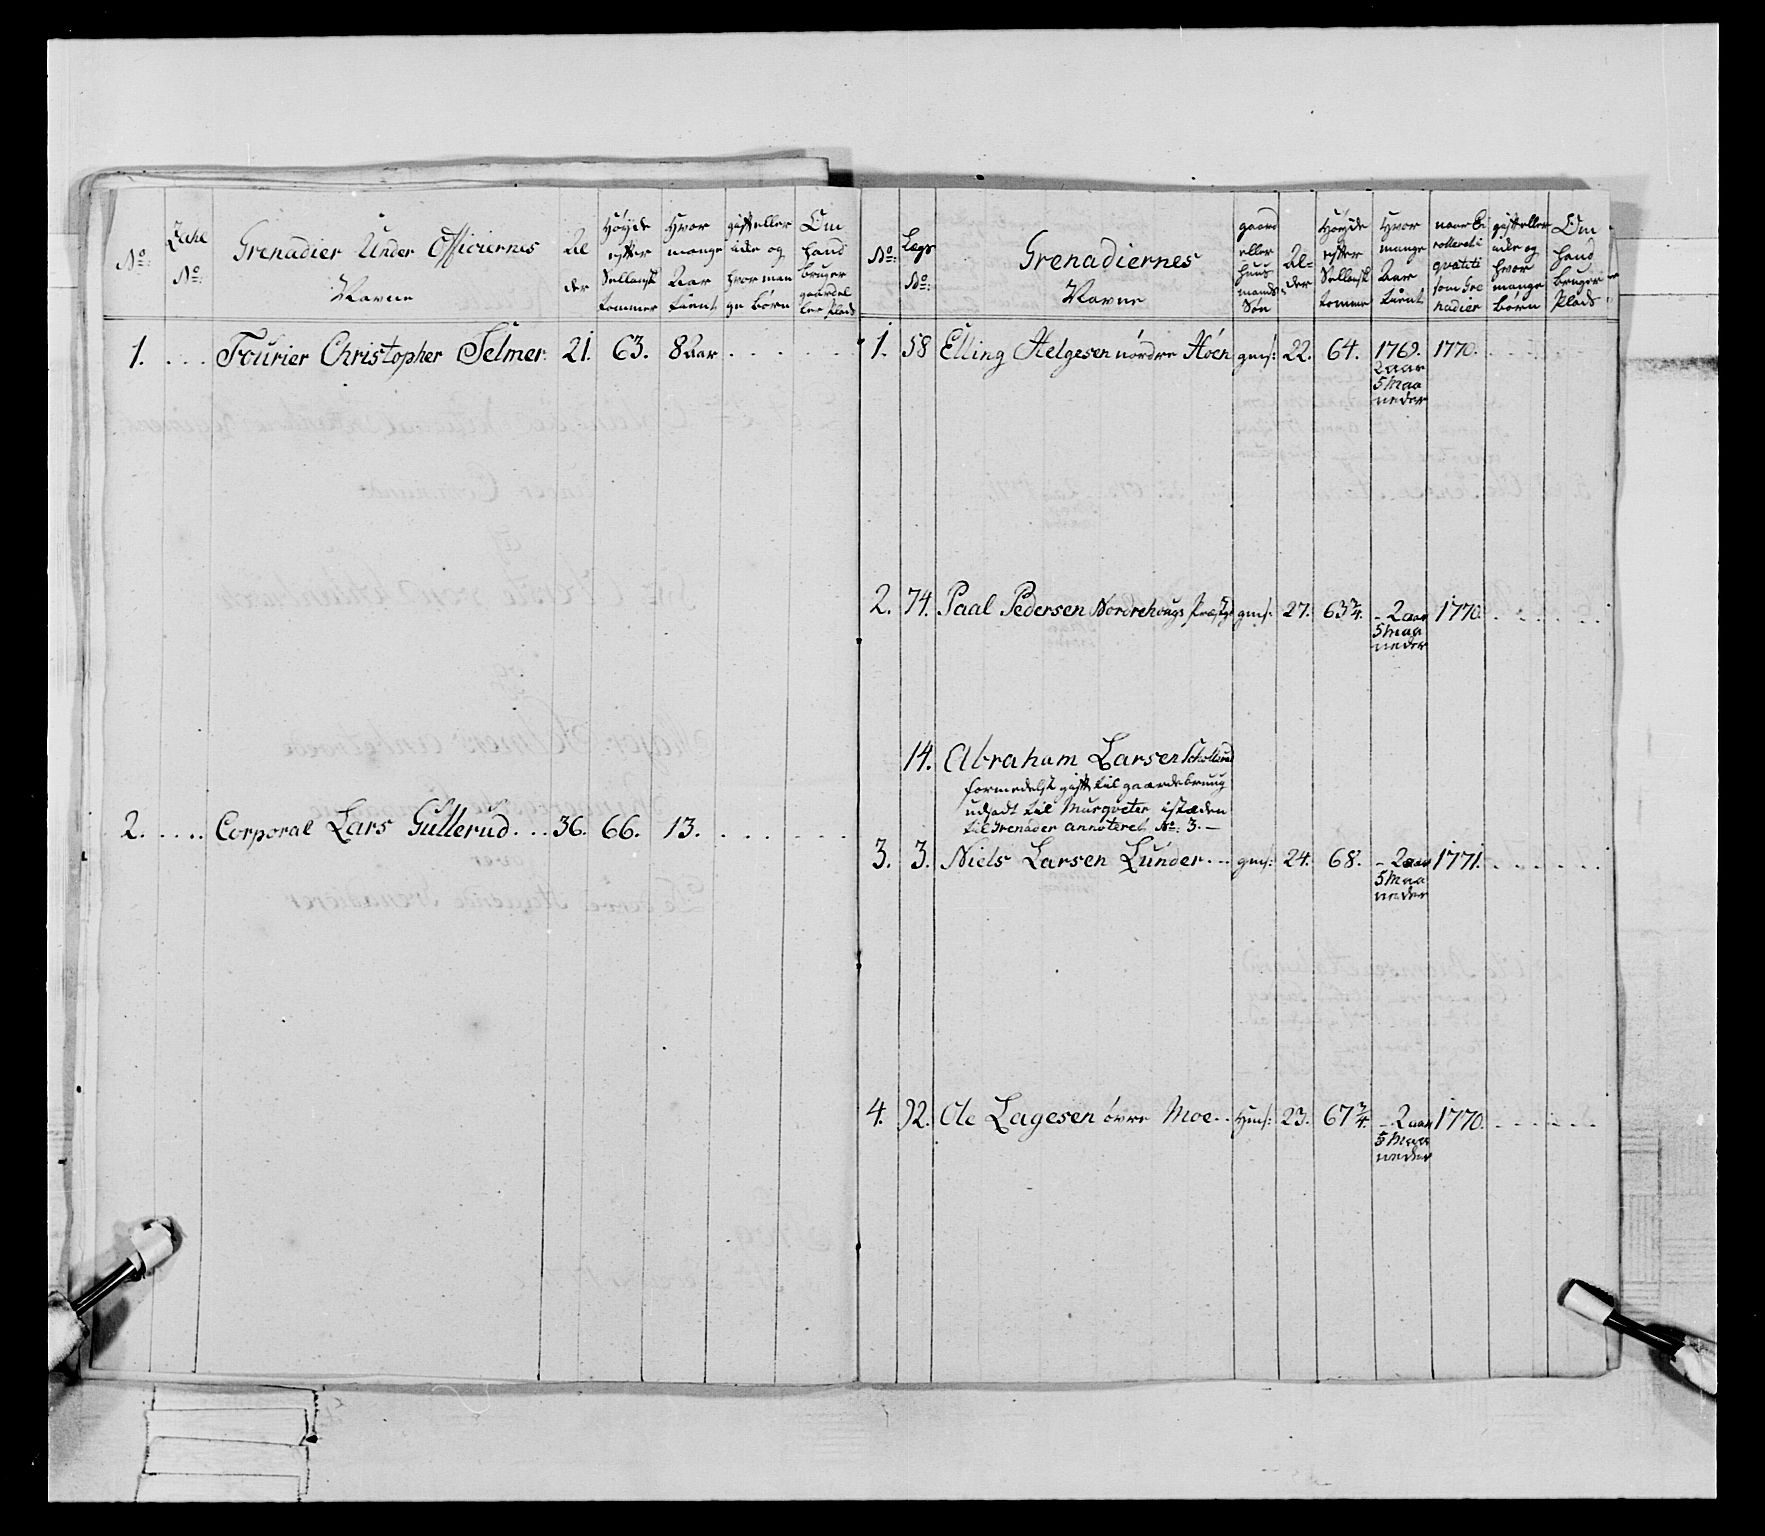 No: Zahl No: Grenadier Under Officiernes Navne Al der Høyde efter Sellansk tommer Hvor mange Aar tient gift eller icke og hvor man ge børn Om hand bruger gaard el ler Plads
1. . . . Fourier Christopher Selmer. 21. 63. 8 Aar . . . . .
2. . . . . Corporal Lars Gullerud. . . 36. 66. 13. . . . . . . .
No: Lægs No: Grenadiernes Navne gaard eller huus mands Søn Al= der Høyde efter Sellansk tomme Hvor mange Aar tient naar En rolleret i qvatiti som Gre nadier gift eller icke og hvor mange børn Om hand bruger Plads
1. 58 Elling Helgesen nordre Hoen gms: 22. 64. 1769. 1770. . . . .
2 aar
5 Maa
neder
2. 74. Paal Pedersen Nordrehougs Præstg gms: 27. 63¾. - 2 aar 1770. . . . . .
5 Maa
neder
14. Abraham Larsen Schollerud
formedelst gift til gaardebruug
udsadt til Musqveter, istæden
til Grenader annoteret No: 3. —
3. 3. Niels Larsen Lunder . . . gms: 24. 68. - 2 aar 1771. . . . . .
5 Maa
neder
4. 92. Ole Lagesen øvre Moe . . Hms: 23. 67¾. - 2 aar 1770. . . . . .
5 Maa
neder